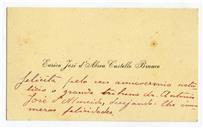 Eurico José d'Abreu Castello Branco
felicita pelo seu anniversario nata
licio o grande tribuno dr. Antonio
José d'Almeida, desejando-lhe in
meras felicidades